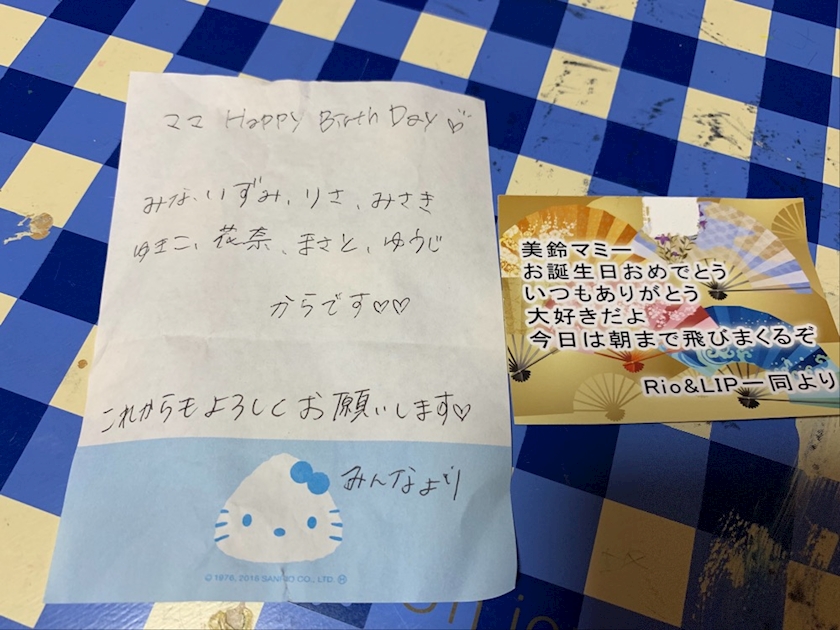 ママ Happy Birth Day♡
みな、いずみ、りさ、みさき
ゆまこ、花奈、まさと、ゆうじ
からです♡♡
これからもよろしくお願いします♡
みんなより
©1976, 2016 SANRIO CO., LTD. Ⓗ
美鈴マミー
お誕生日おめでとう
いつもありがとう
大好きだよ
今日は朝まで飛びまくるぞ
Rio&LIP一同より